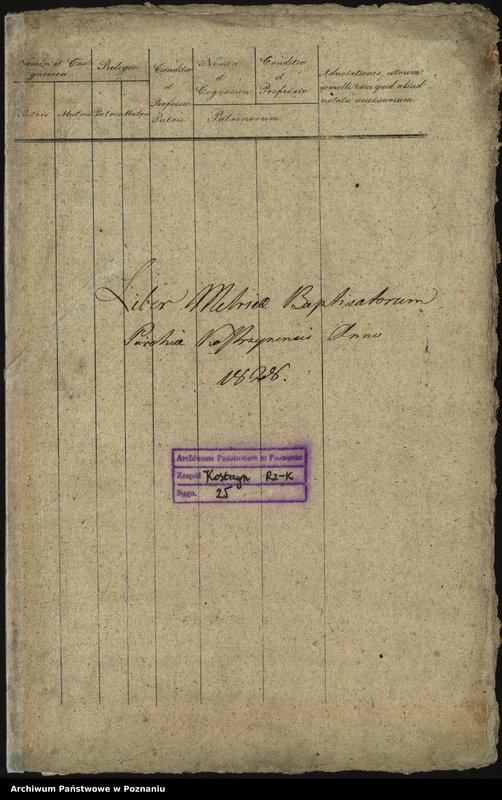 Nomen et Cognomen
Patris
Matris
Religio
Patris
Matris
Conditio
et
Professio
Patris.
Nomen
et
Cognomen
Conditio
et
Professio
Patrinorum.
Adnotationes, utrum
gemelli, seu quid aliud
notatu necessarium.
Liber Metrices Baptisatorum
Parochiæ Kostrzynensis Anno
1828.
Archiwum Państwowe w Poznaniu
Zespół Kostrzyn Rz-K
Sygn. 25
Archiwum Państwowe w Poznaniu